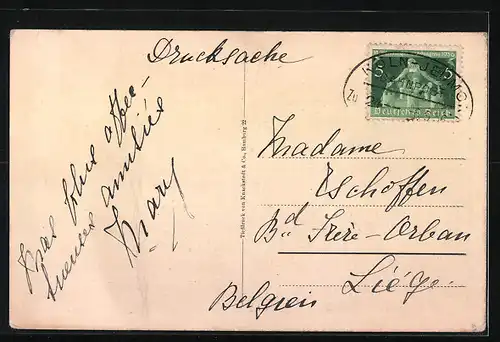 Drucksache
Très
affec-
tueuses amitiés
Mary
Tiefdruck von Knackstedt & Co., Hamburg 22
5 5
Deutsches Reich
KÖLN-JEUMONT
Madame
Eschoffen
Bd Frère-Orban
Liége
Belgien